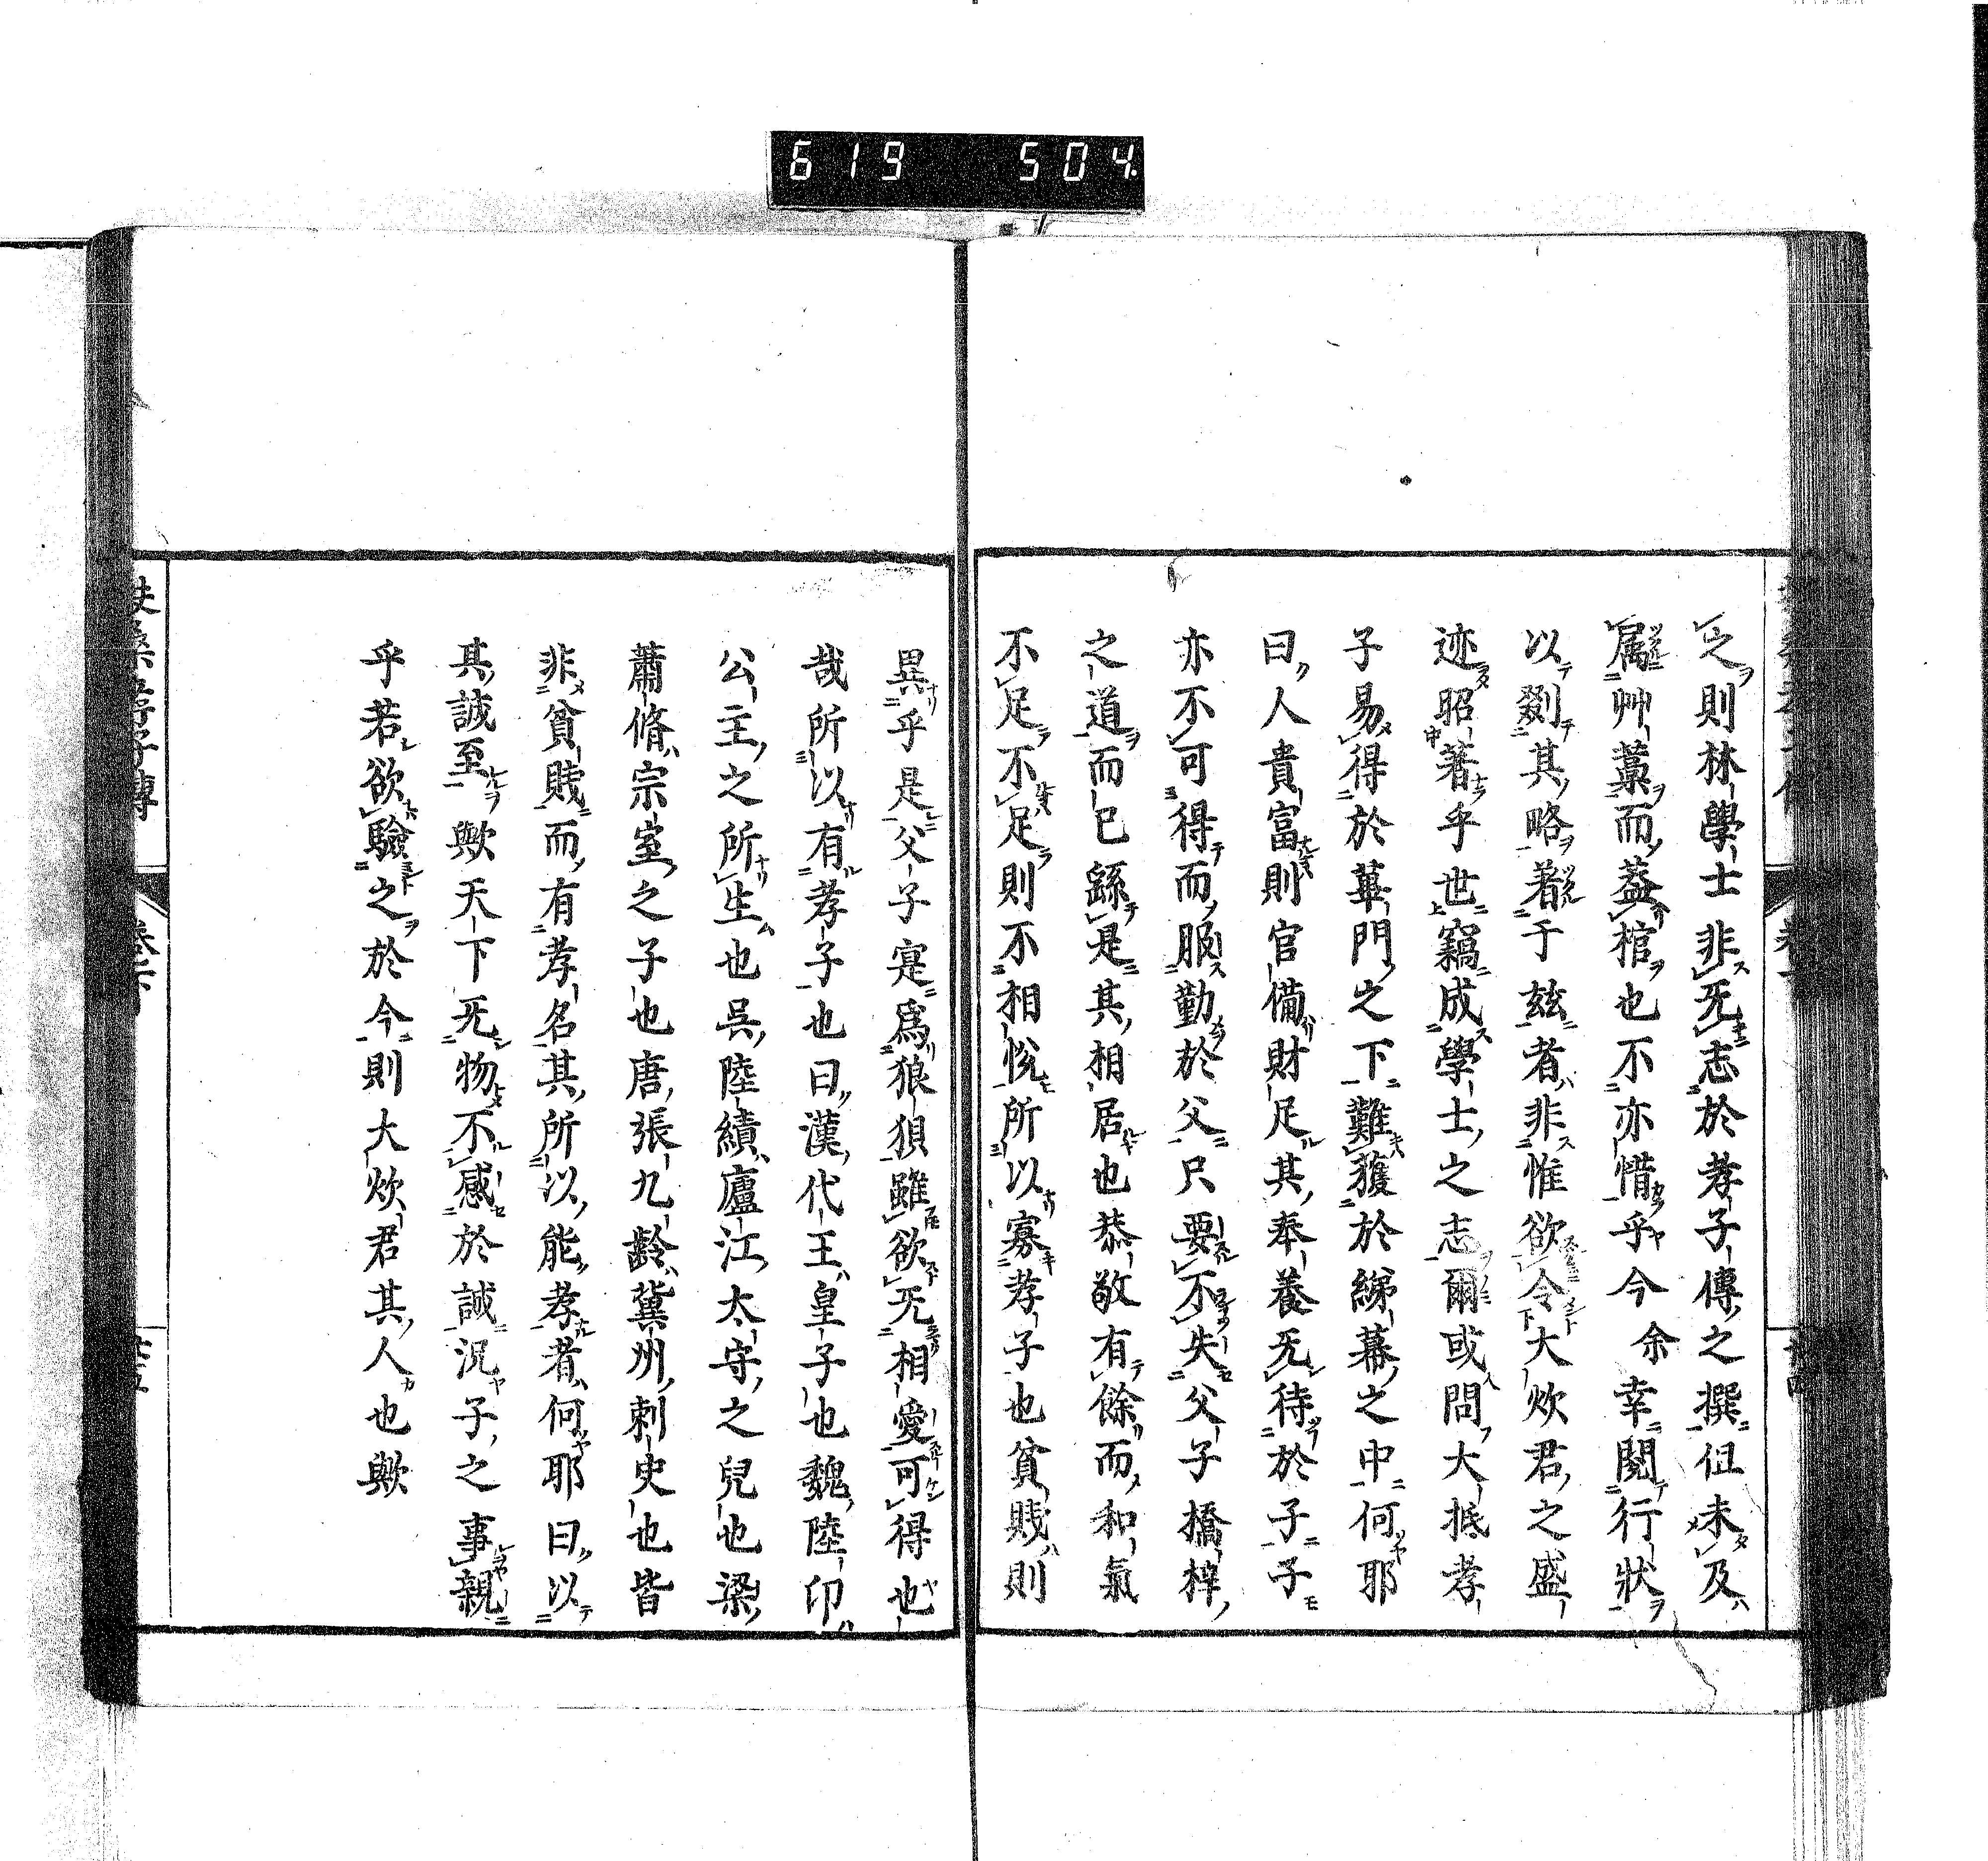 619 504.
之則林學士非无志於孝子傳之撰但未及
属艸藁而蓋棺也不亦惜乎今余幸閱行狀
以劉其略着于玆者非惟欲令大炊君之盛
迹昭著乎世竊成學士之志爾或問大抵孝
子易得於蓽門之下難獲於綈幕之中何耶
曰人貴富則官備財足其奉養无待於子子
亦不可得而服勤於父只要不失父子橋梓
之道而已繇是其相居也恭敬有餘而和氣
不足不足則不相悅所以寡孝子也貧賤則
異乎是父子寔爲狼狽雖欲无相愛可得也
哉所以有孝子也曰漢代王皇子也魏陸印
公主之所生也吳陸績廬江太守之兒也梁
蕭脩宗室之子也唐張九齡冀州刺史也皆
非貧賤而有孝名其所以能孝者何耶曰以
其誠至歟天下无物不感於誠況子之事親
乎若欲驗之於今則大炊君其人也歟